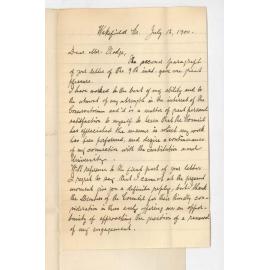 Wakefield July 12, 1900.
Dear Mr. Hodge,
The second paragraph
of your letter of the 9th inst. gave me great
pleasure.
I have worked to the best of my ability and to
the utmost of my strength in the interest of the
Conservatorium and it is a matter of great personal
satisfaction to myself to learn that the Committee
has appreciated the manner in which my work
has been performed, and desire a continuance
of my connection with the institution and
University.
With reference to the first part of your letter
I regret to say that I cannot at the present
moment give you a definite reply, but thank
the Members of the Committee for their kindly con-
sideration in thus early offering me an oppor-
tunity of approaching the question of a renewal
of my engagement.